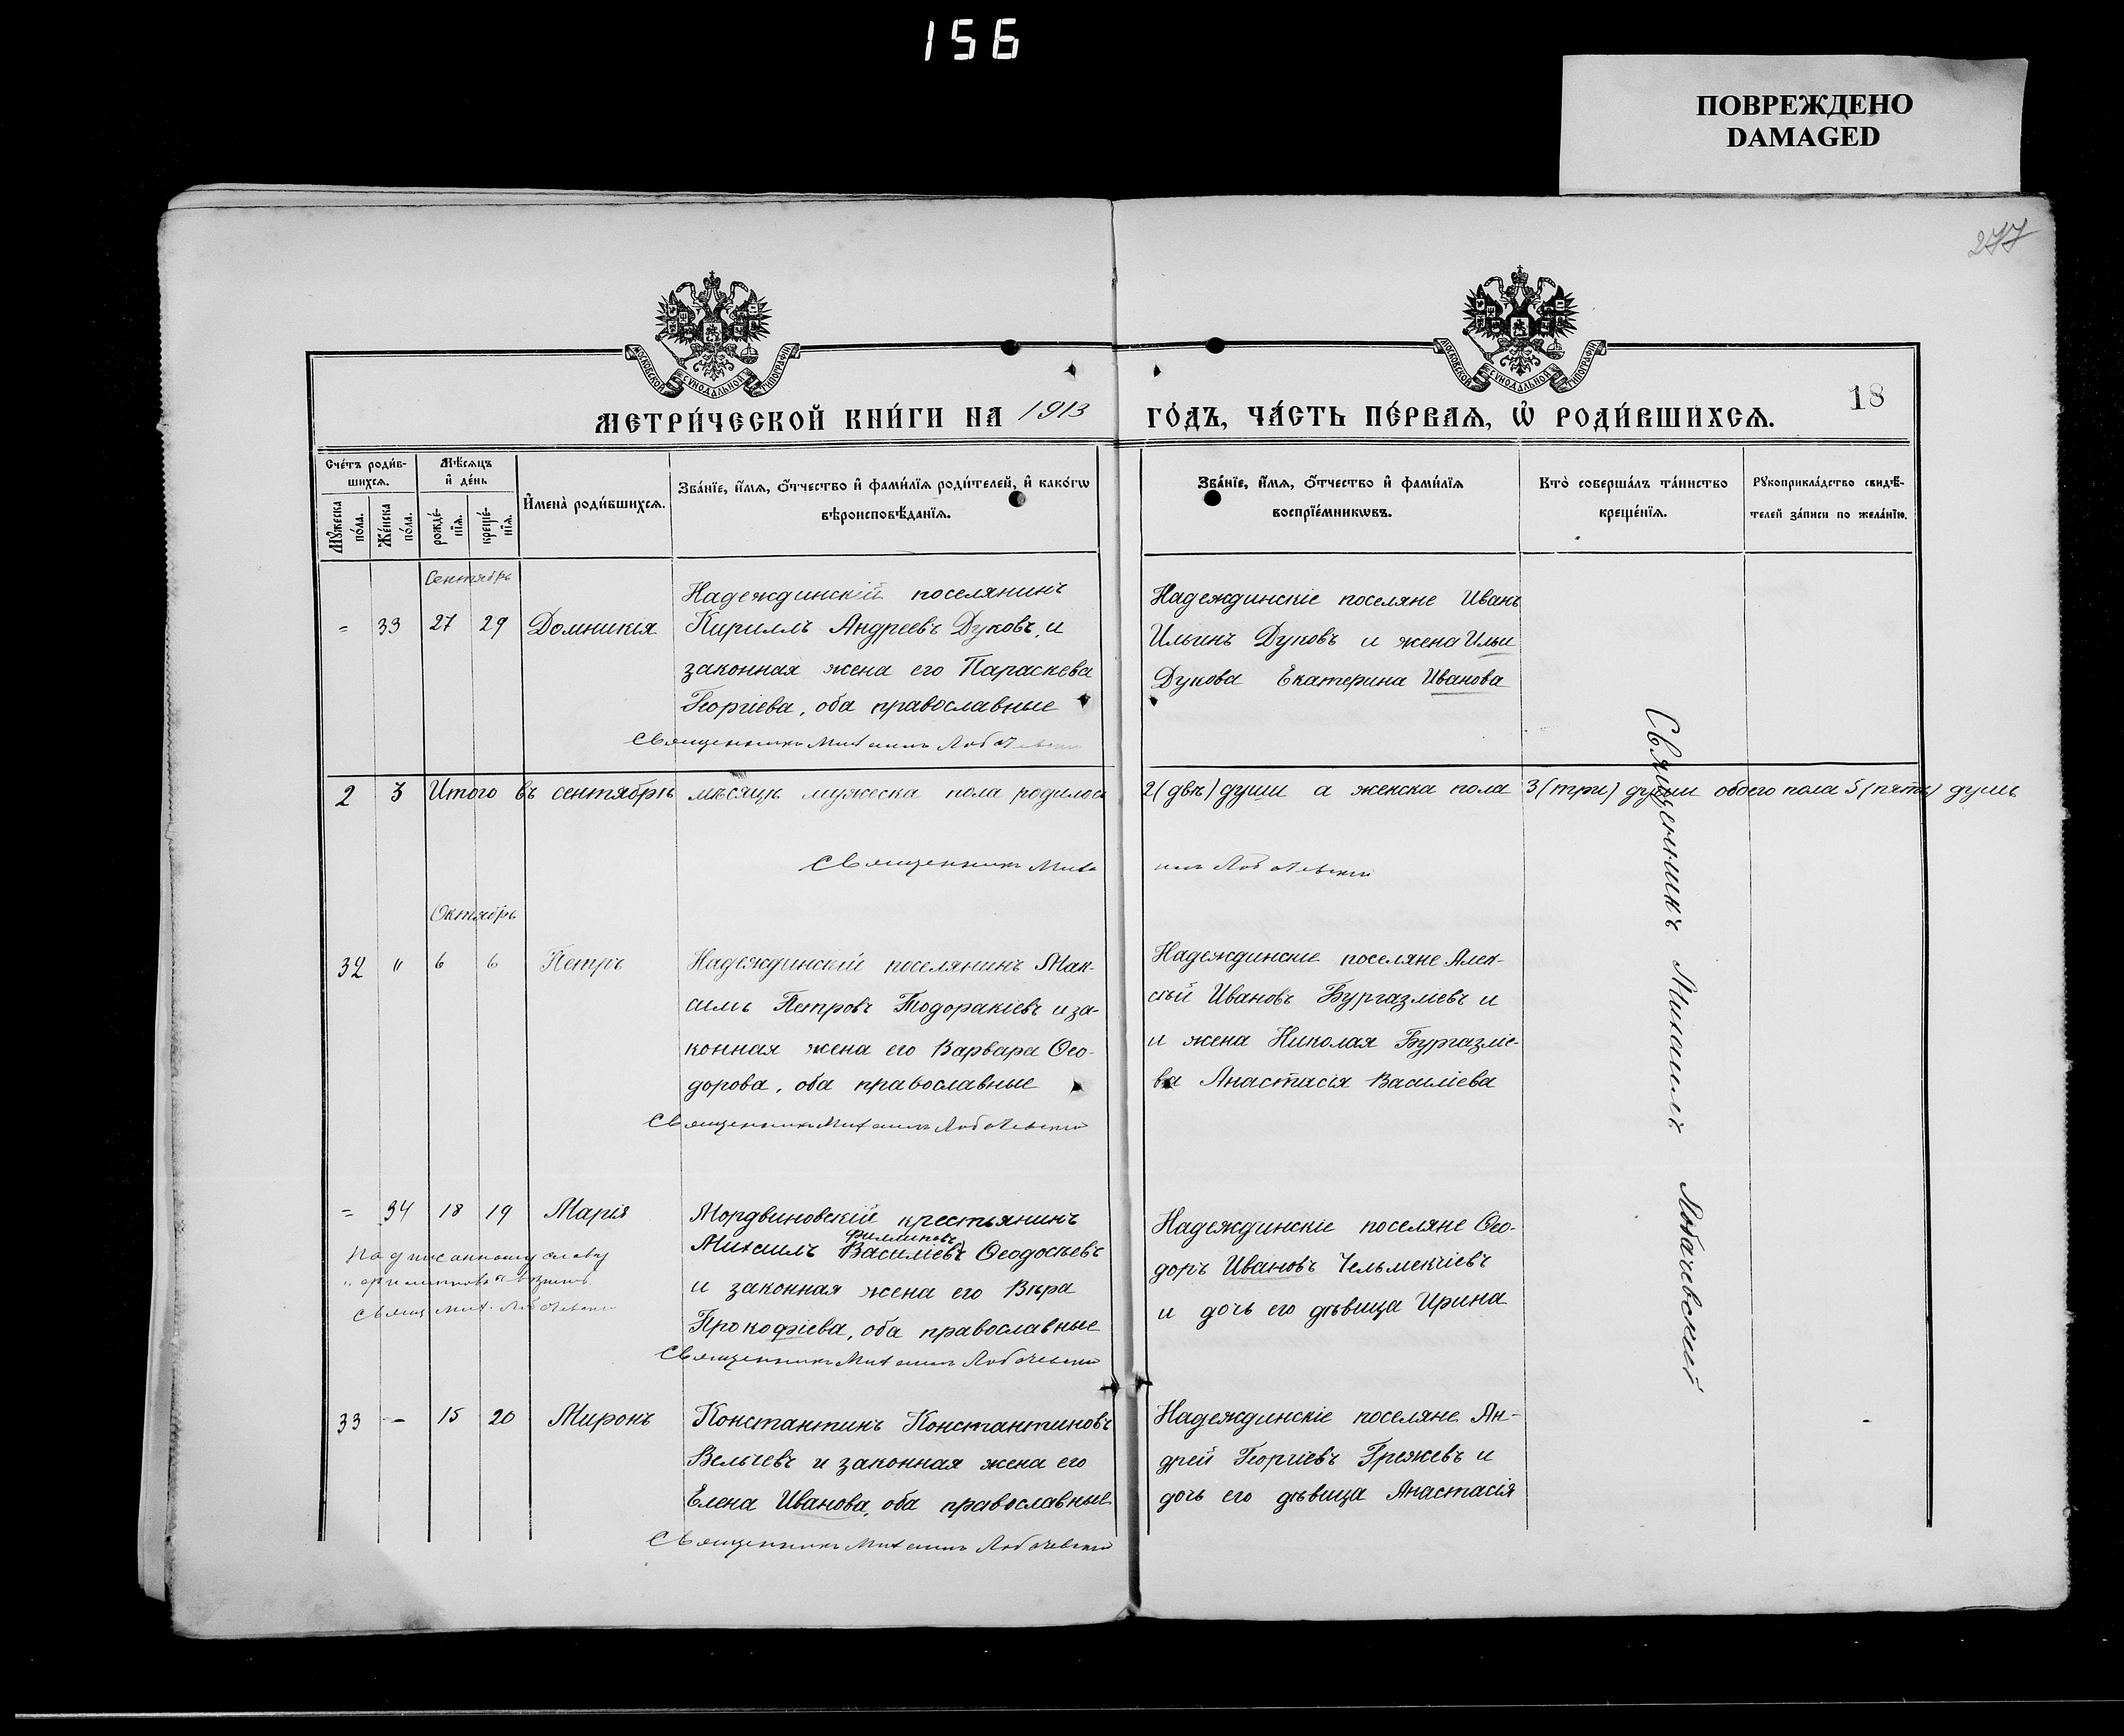 156
ПОВРЕЖДЕНО
DAMAGED
277
МОСКОВСКОЙ СѴНОДАЛЬНОЙ ТИПОГРАФІИ
МОСКОВСКОЙ СѴНОДАЛЬНОЙ ТИПОГРАФІИ
18
МЕТРИ́ЧЕСКОЙ КНИ́ГИ НА 1913 ГО́ДЪ, ЧА́СТЬ ПЕ́РВАѦ, Ѡ҆ РОДИ́ВШИХСѦ.
Сче́тъ роди́в-
шихсѧ.
Мꙋ́жеска по́ла.
Же́нска по́ла.
Мѣ́сѧцъ
и҆ де́нь
рожде́-
нїѧ.
креще́-
нїѧ.
И҆мена̀ роди́вшихсѧ.
Зва́нїе, и҆́мѧ, о҆́тчество и҆ фами́лїѧ роди́телей, и҆ како́гѡ
вѣроисповѣ́данїѧ.
Зва́нїе, и҆́мѧ, о҆́тчество и҆ фами́лїѧ
воспрїе́мникѡвъ.
Кто̀ соверша́лъ та́инство
креще́нїѧ.
Рꙋкоприкла́дство свидѣ́-
телей за́писи по жела́нїю.
Сентябрь
= 33 27 29 Домникія
Надеждинскій поселянинъ
Кириллъ Андреевъ Дуковъ, и
законная жена его Параскева
Георгіева, оба православные
Священникъ Михаилъ Лобачевскій
Надеждинскіе поселяне Иванъ
Ильинъ Дуковъ и жена Ильи
Дукова Екатерина Иванова
2 3 Итого въ сентябрѣ мѣсяцѣ мужеска пола родилось 2 (двѣ) души а женска пола 3 (три) души обоего пола 5 (пять) душъ
Священникъ Михаилъ Лобачевскій
Октябрь
32 " 6 6 Петръ
Надеждинскій поселянинъ Мак-
симъ Петровъ Тодоракіевъ и за-
конная жена его Варвара Ѳео-
дорова, оба православные
Священникъ Михаилъ Лобачевскій
Надеждинскіе поселяне Алек-
сѣй Ивановъ Бургазліевъ и
и жена Николая Бургазліе-
ва Анастасія Василіева
= 34 18 19 Марія
Надписанному слову
"Филиповъ" вѣрить
Свящ. Мих. Лобачевскій
Мордвиновскій крестьянинъ
Филлиповъ
Михаилъ (Василіевъ) Ѳеодосьевъ
и законная жена его Вѣра
Прокофіева, оба православные
Священникъ Михаилъ Лобачевскій
Надеждинскіе поселяне Ѳео-
доръ Ивановъ Чельмекчіевъ
и дочь его дѣвица Ирина
33 — 15 20 Миронъ
Константинъ Константиновъ
Вельчевъ и законная жена его
Елена Иванова, оба православные
Священникъ Михаилъ Лобачевскій
Надеждинскіе поселяне Ан-
дрей Георгіевъ Грежевъ и
дочь его дѣвица Анастасія
Священникъ Михаилъ Лобачевскій